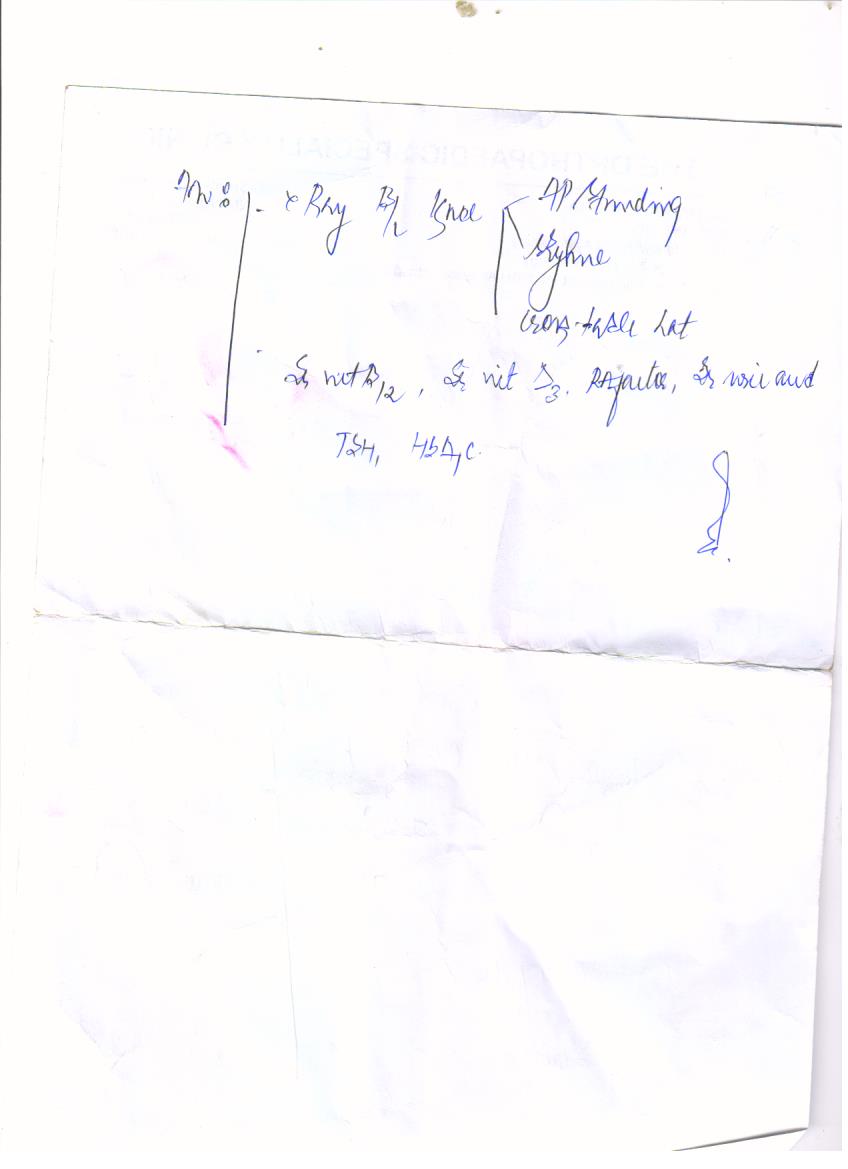 Inv:
- X Ray B/L Knee AP Standing
Skyline
Cross-table Lat
- Sr vit B12, Sr vit D3, RA factor, Sr uric acid
TSH, HbA1c.